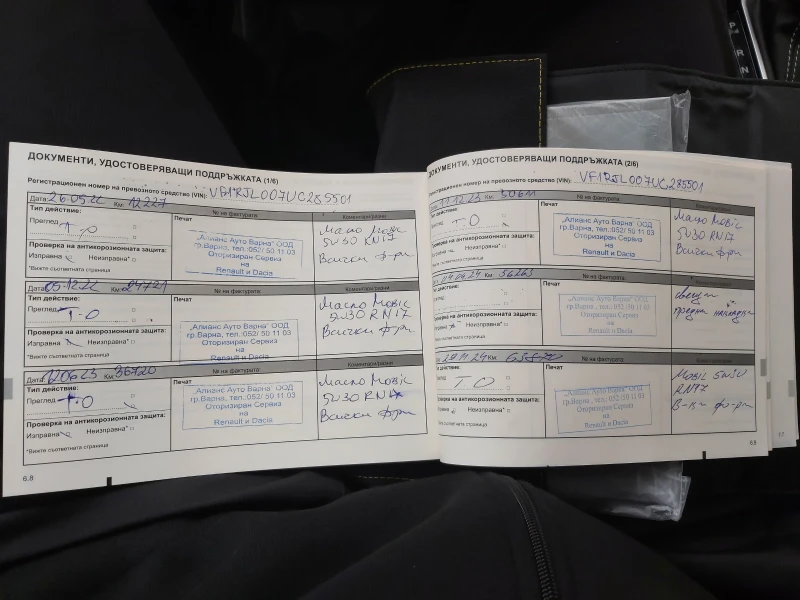 ДОКУМЕНТИ, УДОСТОВЕРЯВАЩИ ПОДДРЪЖКАТА (1/6)
Регистрационен номер на превозното средство (VIN): VF1RJL007UC285501
Дата: 26.05.22 Км: 12227 № на фактурата
Тип действие: Печат Коментари/разни
Преглед Т.О
"Алианс Ауто Варна" ООД
гр.Варна, тел.:052/ 50 11 03
Оторизиран Сервиз
на
Renault и Dacia
Масло Мобіс
5W30 RN17
Всички ф-ри
Проверка на антикорозионната защита:
Изправна Неизправна*
*Вижте съответната страница
Дата: 05.12.22 Км: 24721 № на фактурата
Тип действие: Печат Коментари/разни
Преглед Т.О
"Алианс Ауто Варна" ООД
гр.Варна, тел.:052/ 50 11 03
Оторизиран Сервиз
на
Renault и Dacia
Масло Мобіс
5W30 RN17
Всички ф-ри
Проверка на антикорозионната защита:
Изправна Неизправна*
*Вижте съответната страница
Дата: 120623 Км: 36720 № на фактурата
Тип действие: Печат Коментари/разни
Преглед Т.О
"Алианс Ауто Варна" ООД
гр.Варна, тел.:052/ 50 11 03
Оторизиран Сервиз
на
Renault и Dacia
Масло Мобіс
5W30 RN17
Всички ф-ри
Проверка на антикорозионната защита:
Изправна Неизправна*
*Вижте съответната страница
6.8
ДОКУМЕНТИ, УДОСТОВЕРЯВАЩИ ПОДДРЪЖКАТА (2/6)
Регистрационен номер на превозното средство (VIN): VF1RJL007UC285501
11.12.23 Км: 50611 № на фактурата
действие: Печат Коментари/разни
Преглед ТО
"Алианс Ауто Варна" ООД
гр.Варна, тел.: 052/ 50 11 03
Оторизиран Сервиз
на
Renault и Dacia
Масло Мобіс
5W30 RN17
Всички ф-ри
Проверка на антикорозионната защита:
Изправна Неизправна*
*Вижте съответната страница
04.04.24 Км: 56265 № на фактурата
действие: Печат
Преглед
"Алианс Ауто Варна" ООД
гр.Варна, тел.: 052/ 50 11 03
Оторизиран Сервиз
на
Renault и Dacia
свещи
предни накладки
Проверка на антикорозионната защита:
Неизправна*
*Вижте съответната страница
29.11.24 Км: № на фактурата
действие: Печат Коментари/разни
Преглед ТО
"Алианс Ауто Варна" ООД
гр.Варна, тел.: 052/ 50 11 03
Оторизиран Сервиз
на
Renault и Dacia
Мовіл 5W30
RN17
В-ки фи-ри
Проверка на антикорозионната защита:
Неизправна*
*Вижте съответната страница
6.9
P
R
N